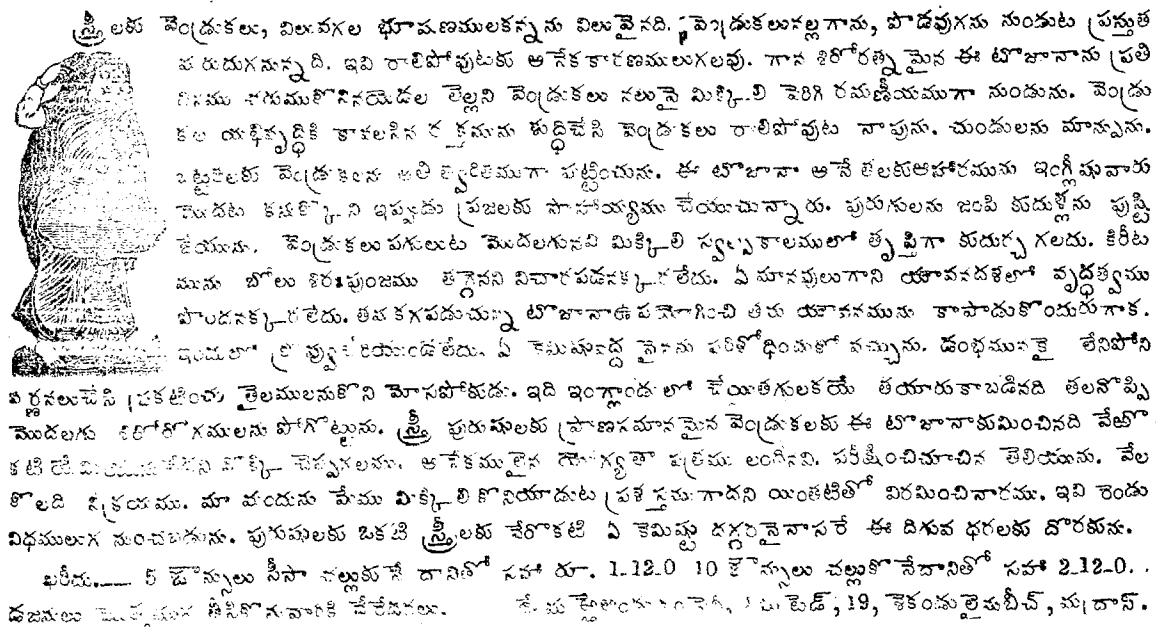 స్త్రీలకు వెండ్రుకలు, విలువగల భూషణములకన్నను విలువైనది. వెండ్రుకలునల్లగాను, పొడవుగను నుండుట ప్రస్తుత
మరుదుగనున్నది. ఇవి రాలిపోవుటకు అనేక కారణములుగలవు. గాన శిరోరత్నమైన ఈ టొజానాను ప్రతి
దినము చరుముకొనినయెడల తెల్లని వెండ్రుకలు నలుపై మిక్కిలి పెరిగి రమణీయముగా నుండును. వెండ్రు
కల యభివృద్ధికి కావలసిన రక్తమును శుద్ధిచేసి వెండ్రుకలు రాలిపోవుట నాపును. చుండులను మాన్పును.
బట్టతలకు వెండ్రుకలను అతి త్వరితముగా పుట్టించును. ఈ టొజానా అనే తలకుఆహారమును ఇంగ్లీషువారు
మొదట కనుక్కొని ఇప్పుడు ప్రజలకు సాహాయ్యము చేయుచున్నారు. పురుగులను జంపి కుదుళ్లను పుష్టి
చేయును. వెండ్రుకలు పగులుట మొదలగునవి మిక్కిలి స్వల్పకాలములో తృప్తిగా కుదుర్చ గలదు. కిరీట
మును బోలు శిరఃపుంజము తగ్గెనని విచారపడనక్కరలేదు. ఏ మానవులుగాని యౌవనదశలో వృద్ధత్వము
పొందనక్కరలేదు. తమకగపడుచున్న టొజానాఉపయోగించి తమ యౌవనమును కాపాడుకొందురుగాక.
ఇందులో క్రొవ్వుచేరియుండలేదు. ఏ కెమిషువద్ద నైనను పరిశోధించుకో వచ్చును. డంభమునకై లేనిపోని
వర్ణనలుచేసి ప్రకటించు తైలములనుకొని మోసపోకుడు. ఇది ఇంగ్లాండులో చేయితగులకయే తయారుకాబడినది తలనొప్పి
మొదలగు శిరోరోగములను పోగొట్టును. స్త్రీ పురుషులకు ప్రాణసమానమైన వెండ్రుకలకు ఈ టొజానాకుమించినది వేఱొ
కటి లేదని నొక్కి చెప్పగలము. అనేకములైన యోగ్యతా పత్రము లందినవి. పరీక్షించిచూచిన తెలియును. వేల
కొలది విక్రయము. మా మందును మేము మిక్కిలి కొనియాడుట ప్రశస్తముగాదని యింతటితో విరమించినారము. ఇవి రెండు
విధములుగ నుంచబడును. పురుషులకు ఒకటి స్త్రీలకు వేరొకటి ఏ కెమిష్టు దగ్గరనైనాసరే ఈ దిగువ ధరలకు దొరకును.
ఖరీదు.— 5 ఔన్సులు సీసా చల్లుకునే దానితో సహా రూ. 1-12-0 10 ఔన్సులు చల్లుకొనేదానితో సహా 2-12-0.
డజనులు తీసికొనువారికి వేరేధరలు. 19, శెకండులైనుబీచ్, మద్రాస్.